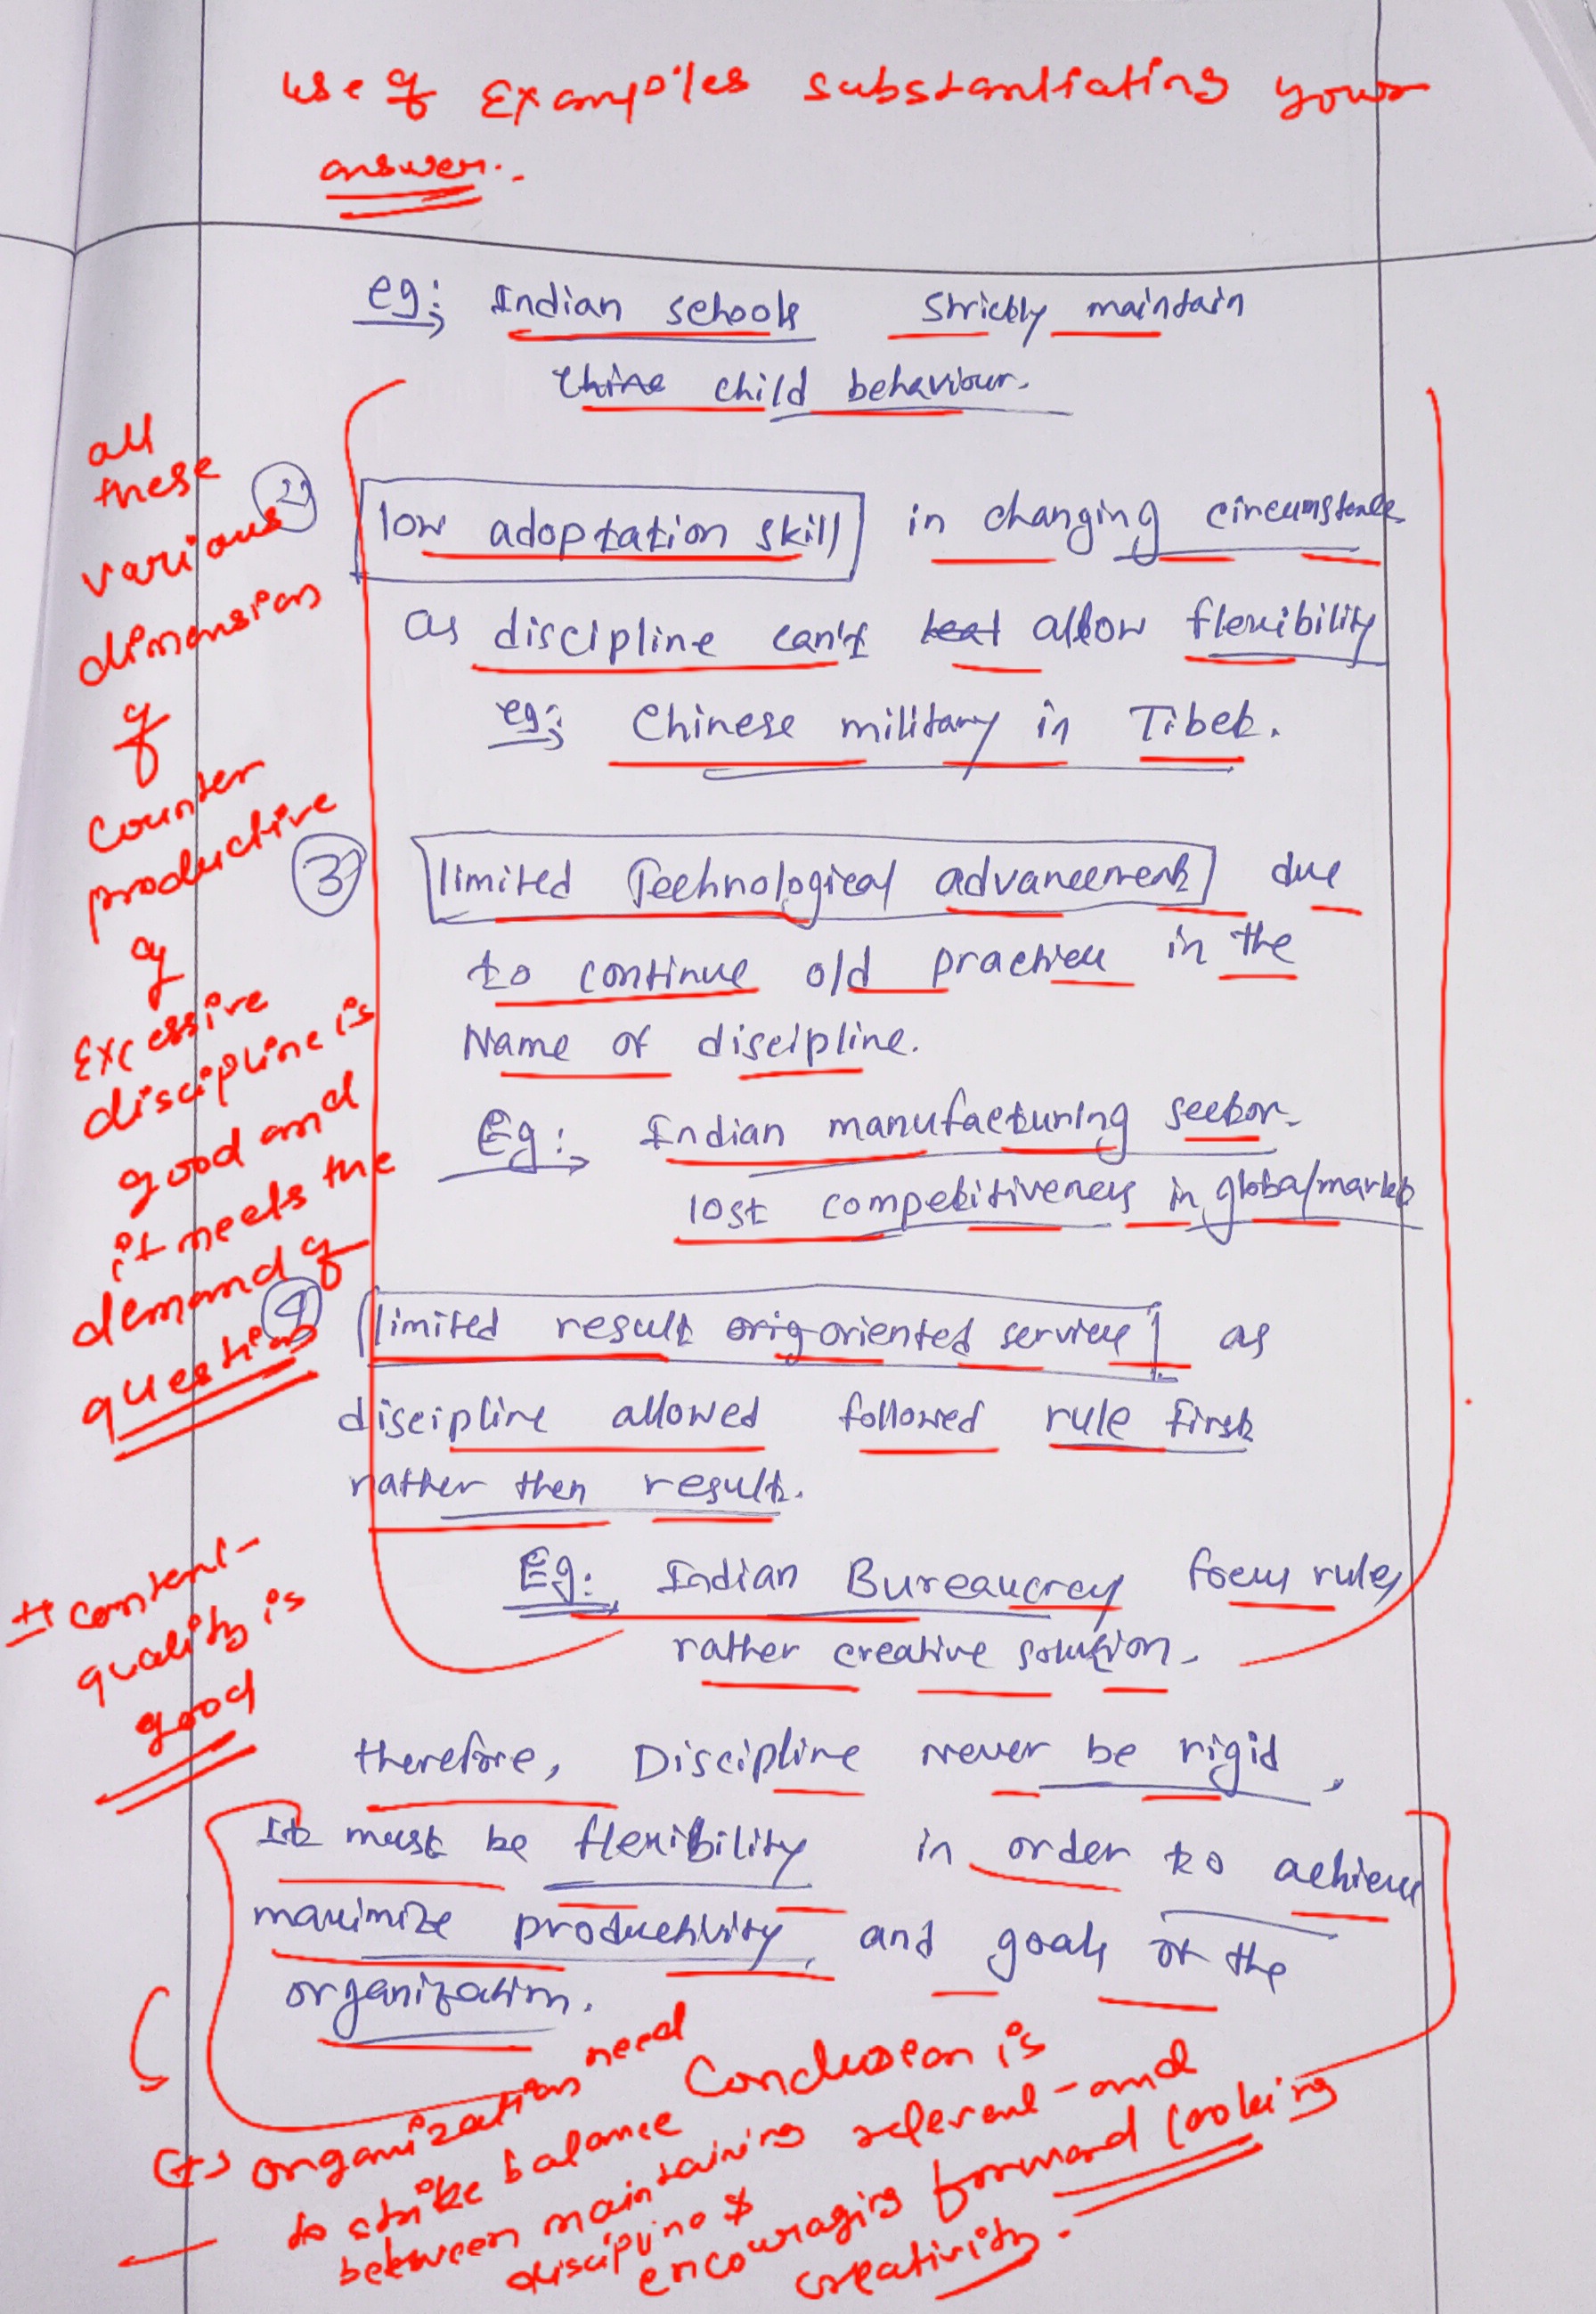 use of Examples substantiating your
answer.
eg: Indian schools strictly maintain
thine child behaviour.
all
these
various
dimension
of
counter
productive
of
Excessive
discipline is
good and
it meets the
demand of
question
2 low adoptation skill in changing circumstances
as discipline can't teat allow flexibility
eg: Chinese military in Tibet.
3 limited Technological advancement due
to continue old practice in the
Name of discipline.
Eg: Indian manufacturing sector
lost competitiveness in global market
4 limited result orig oriented services as
discipline allowed followed rule first
rather then result.
Eg: Indian Bureaucracy focus rules
rather creative solution.
content
quality is
good
therefore, Discipline never be rigid,
It must be flexibility in order to achieve
maximize productivity, and goals of the
organization.
Conclusion is
relevant and
forward looking
organization need
to strike balance
between maintaining
discipline &
encouraging
creativity.